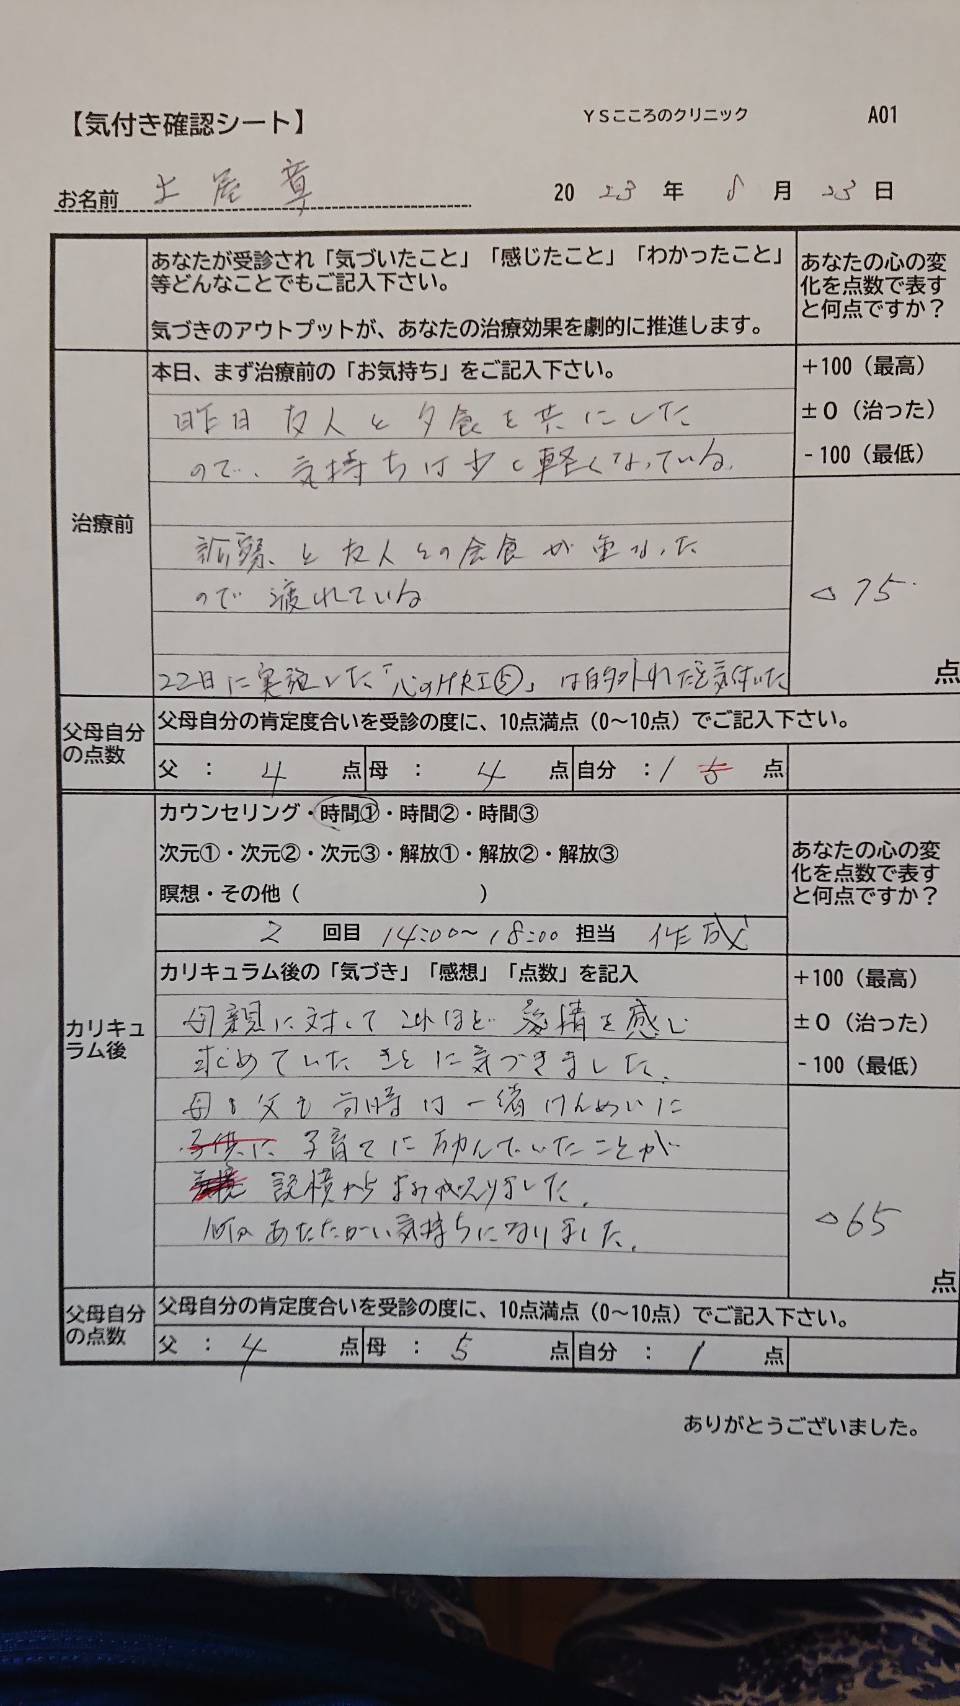 【気付き確認シート】
YSこころのクリニック
A01
お名前 土屋 章
2023年 8月 23日
あなたが受診され「気づいたこと」「感じたこと」「わかったこと」
等どんなことでもご記入下さい。
気づきのアウトプットが、あなたの治療効果を劇的に推進します。
あなたの心の変
化を点数で表す
と何点ですか？
治療前
本日、まず治療前の「お気持ち」をご記入下さい。
昨日 友人と夕食を共にした
ので、気持ちは少し軽くなっている。
と友人との会食が重なった
ので疲れている
22日に実施した「心のMRI⑤」は的外れだと気付いた
+100（最高）
±0（治った）
-100（最低）
△75
点
父母自分
の点数
父母自分の肯定度合いを受診の度に、10点満点（0～10点）でご記入下さい。
父 ： 4 点 母 ： 4 点 自分 ： 1 5 点
カリキュ
ラム後
カウンセリング・時間①・時間②・時間③
次元①・次元②・次元③・解放①・解放②・解放③
瞑想・その他（ ）
2 回目 14:00～18:00 担当 作成
あなたの心の変
化を点数で表す
と何点ですか？
カリキュラム後の「気づき」「感想」「点数」を記入
母親に対してこれほど愛情を感じ
求めていたことに気づきました。
母も父も当時は一緒けんめいに
子供に 子育てに励んでいたことが
面積からよみがえりました。
あたたかい気持ちになりました。
+100（最高）
±0（治った）
-100（最低）
△65
点
父母自分
の点数
父母自分の肯定度合いを受診の度に、10点満点（0～10点）でご記入下さい。
父 ： 4 点 母 ： 5 点 自分 ： 1 点
ありがとうございました。